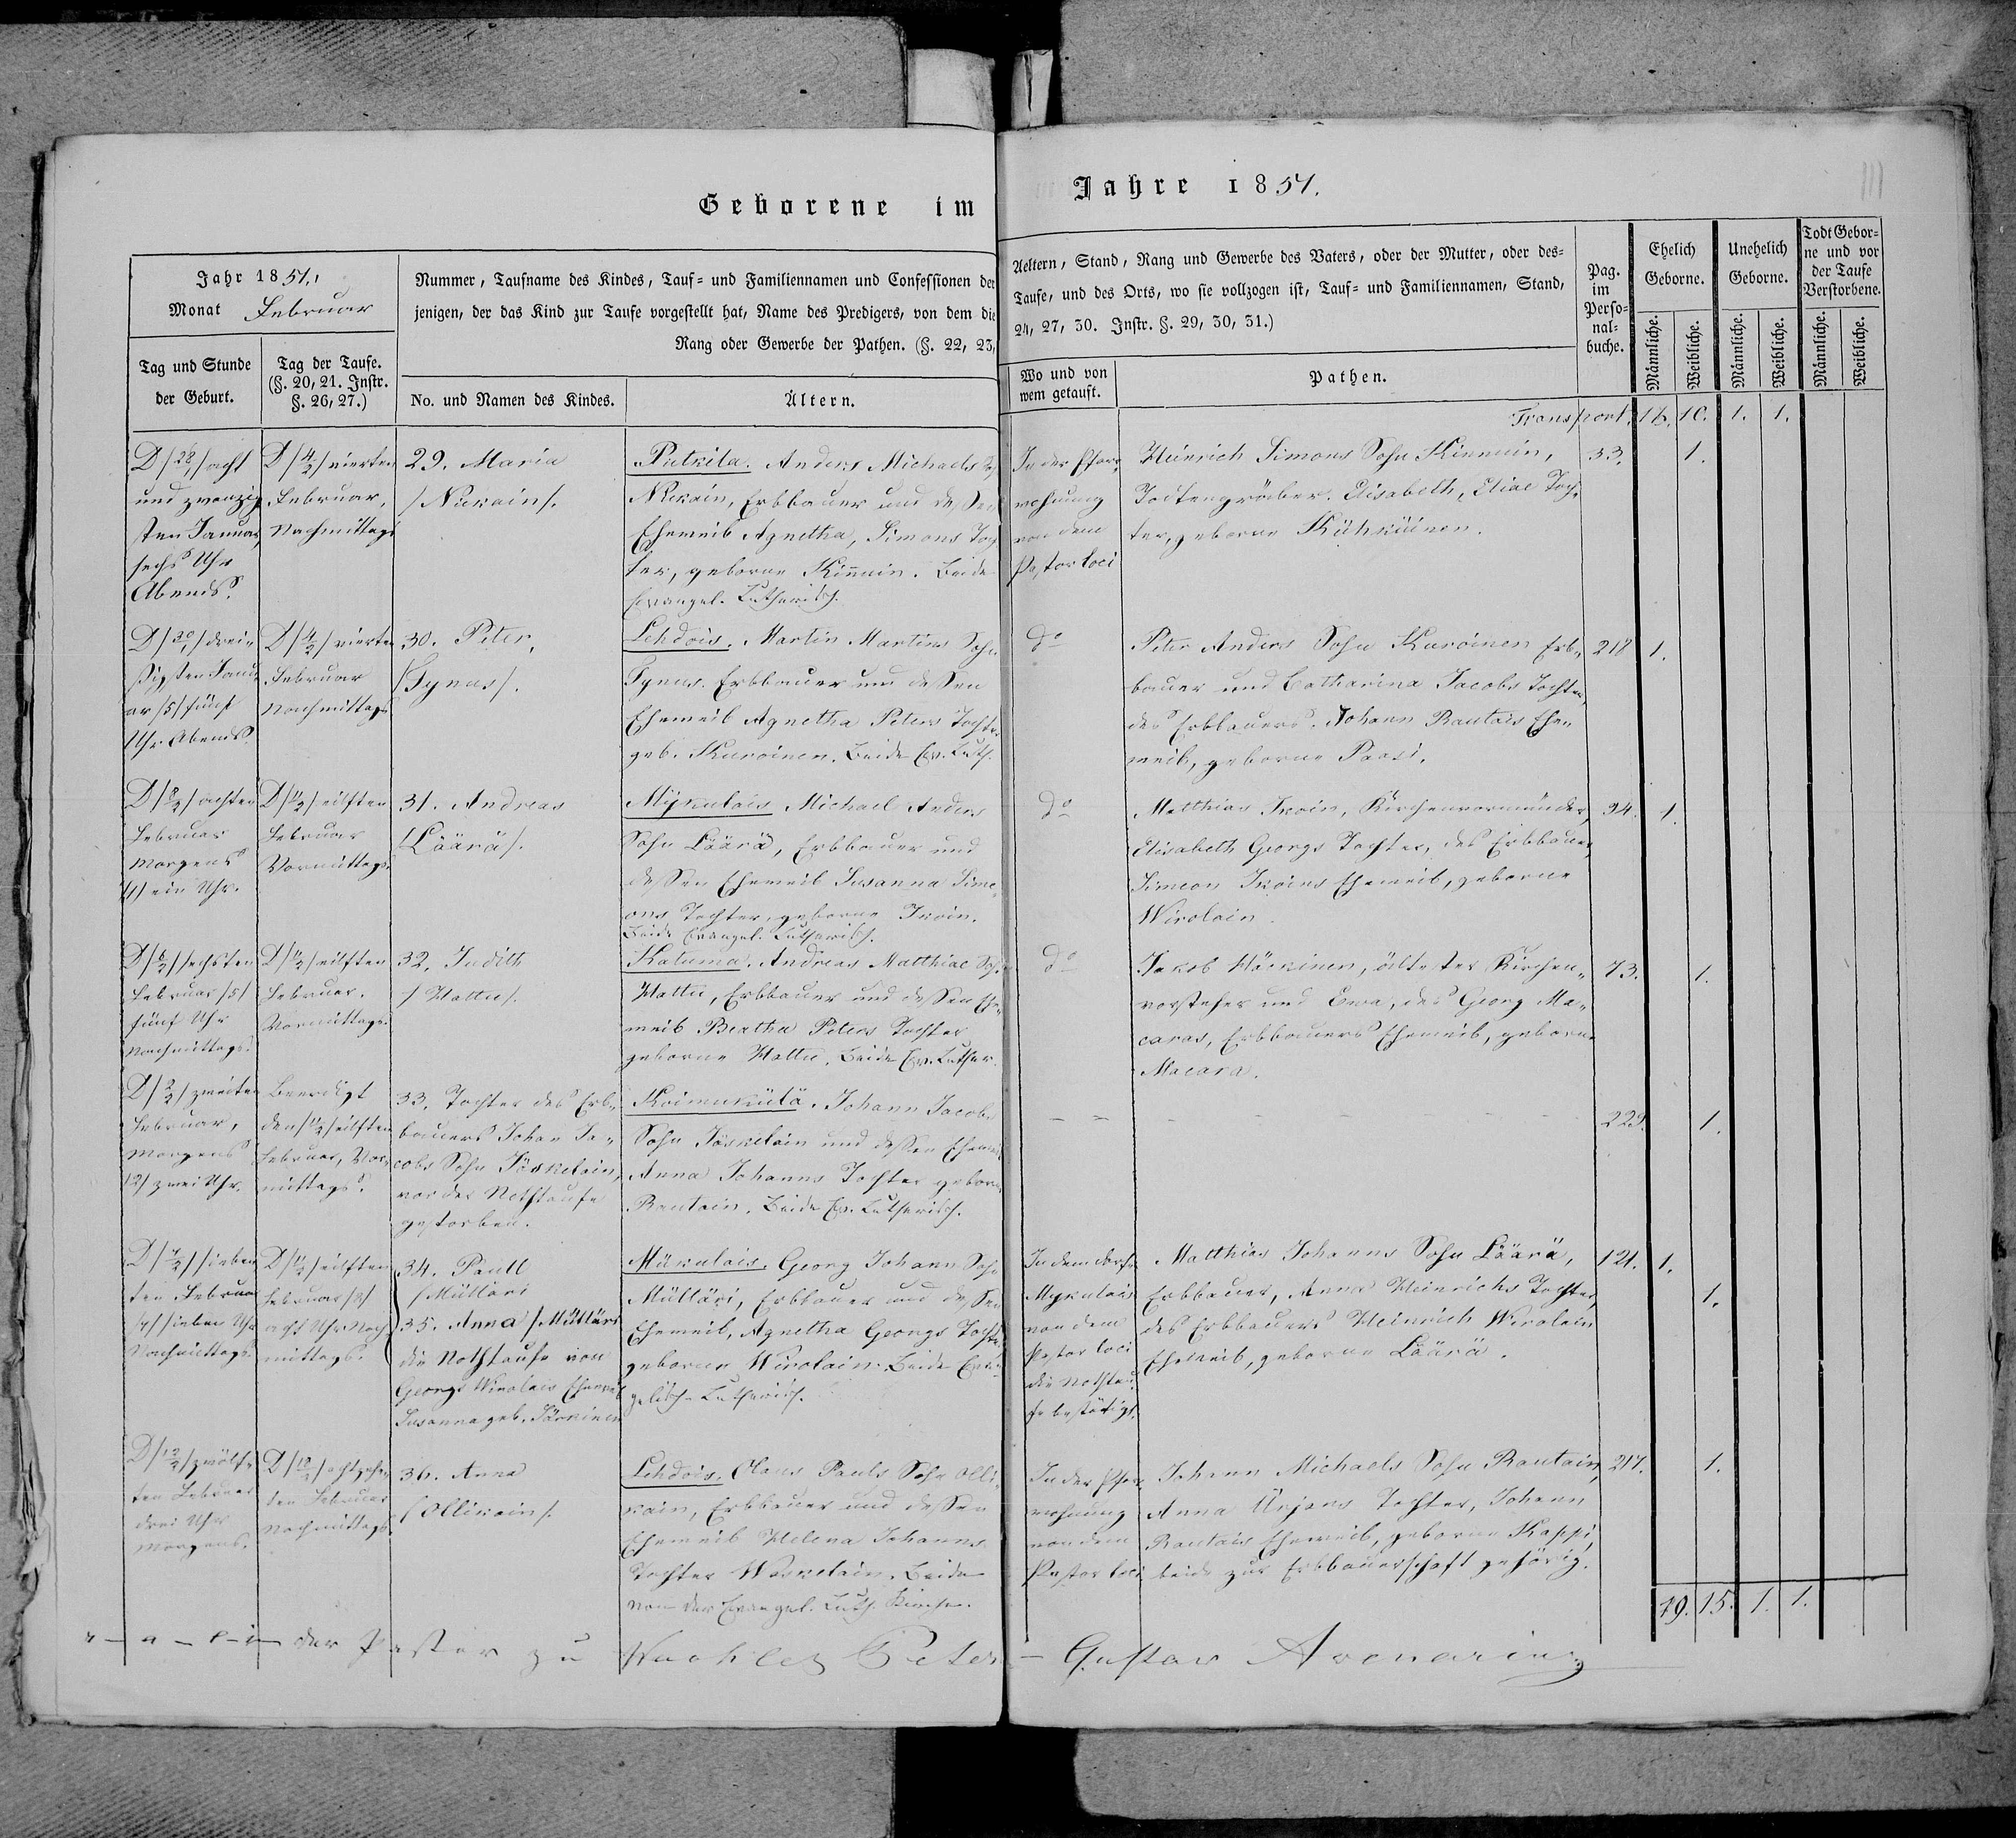 Geborene im
Jahre 1851.
Jahr 1851,
Monat Februar
Nummer, Taufname des Kindes, Tauf= und Familiennamen und Confessionen der
jenigen, der das Kind zur Taufe vorgestellt hat, Name des Predigers, von dem die
Rang oder Gewerbe der Pathen. (§. 22, 23,
Tag und Stunde
der Geburt.
Tag der Taufe.
(§. 20, 21. Instr.
§. 26, 27.)
No. und Namen des Kindes.
Ältern.
Aeltern, Stand, Rang und Gewerbe des Vaters, oder der Mutter, oder des=
Taufe, und des Orts, wo sie vollzogen ist, Tauf= und Familiennamen, Stand,
24, 27, 30. Instr. §. 29, 30, 31.)
Wo und von
wem getauft.
Pathen.
Pag.
im
Perso=
nal=
buche.
Ehelich
Geborne.
Unehelich
Geborne.
Todt Gebor=
ne und vor
der Taufe
Verstorbene.
Männliche.
Weibliche.
Männliche.
Weibliche.
Männliche.
Weibliche.
Transport. 16. 10. 1. 1.
D/28/1/acht
und zwanzig
sten Januar,
sechs Uhr
Abends.
D/4/2/vierten
Februar,
Nachmittags
29. Maria
/Nukain/.
Putkila. Anders Michaels
Nukain, Erbbauer und dessen
Eheweib Agnetha, Simons Toch
ter, geborne Kinnuin. Beide
Evangel. Lutherisch.
In der Pfar
wohnung
von dem
Pastor loci
Heinrich Simons Sohn Kinnuin,
Todtengräber. Elisabeth, Eliae Toch
ter, geborne Kühküinen.
33. 1.
D/30/1/drei
ßigsten Janu
ar/5/fünf
Uhr Abends.
D/4/2/vierten
Februar
Nachmittags
30. Peter,
/Tynus/.
Lehdois. Martin Martins Sohn
Tynus. Erbbauer und dessen
Eheweib Agnetha Peters Tochter
geb. Kuroinen. Beide Ev. Luth.
do
Peter Anders Sohn Kuroinen Erb„
bauer und Catharina Jacobs Tochter,
des Erbbauers Johann Rautais Ehe„
weib, geborne Paasi.
218 1.
D/8/2/achten
Februar
Morgens
/1/ein Uhr.
D/11/2/eilften
Februar
Vormittags.
31. Andreas
/Läärä/.
Mykulais Michael Anders
Sohn Läärä, Erbbauer und
dessen Eheweib Susanna Sime„
ons Tochter, geborne Ikoin.
Beide Evangel. Lutherisch.
do
Matthias Ikoin, Kirchenvormünder,
Elisabeth Georgs Tochter, des Erbbauer
Simeon Ikoins Eheweib, geborne
Wirolain.
94. 1.
D/6/2/sechsten
Februar/5/
fünf Uhr
Nachmittags.
D/11/2/eilften
Februar.
Vormittags.
32. Judith
/Hattu/.
Katuma. Andreas Matthiae Sohn
Hattu, Erbbauer und dessen Ehe„
weib Beatha Peters Tochter
geborne Hattu. Beide Ev. Luther.
do
Jakob Härkinen, ältester Kirchen„
vorsteher und Ewa, des Georg Ma„
caras, Erbbauers Eheweib, geborne
Macara.
73. 1.
D/2/2/zweiten
Februar,
Morgens
/2/zwei Uhr.
Beerdigt
den/11/2/eilften
Februar, Vor„
mittags.
33. Tochter des Erb„
bauers Johan Ja„
cobs Sohn Jäskelain,
vor der Nothtaufe
gestorben.
Koimukülä. Johann Jacobs
Sohn Jäskelain und dessen Eheweib
Anna Johanns Tochter geborne
Rautain. Beide Ev. Lutherisch.
223. 1.
D/7/2/sieben
ten Februar
/7/sieben Uhr
Nachmittags.
D/11/2/eilften
Februar/8/
acht Uhr Nach„
mittags.
34. Paull
/Mülläri
35. Anna /Mülläri
die Nothtaufe von
Georgs Wirolais Eheweib
Susanna geb. Särkinen
Mükulais. Georg Johann Sohn
Mülläri, Erbbauer und dessen
Eheweib, Agnetha Georgs Tochter,
geborne Wirolain. Beide Evan
gelisch Lutherisch.
In dem Dorfe
Mykulais
von dem
Pastor loci
die Nothtau
fe bestätigt.
Matthias Johanns Sohn Läärä,
Erbbauer, Anna Heinrichs Tochter,
des Erbbauers Heinrich Wirolain
Eheweib, geborne Läärä.
121. 1.
1.
D/12/2/zwölf„
ten Februar
drei Uhr
Morgens.
D/18/2/achtzehn
ten Februar
Nachmittags.
36. Anna
/Ollikain/.
Lehdois. Olaus Pauls Sohn Olli
kain, Erbbauer und dessen
Eheweib Helena Johanns
Tochter Weskelain. Beide
von der Evangel. Luth. Kirche.
In der Pfar
wohnung
von dem
Pastor loci
Johann Michaels Sohn Rautain,
Anna Ürjans Tochter, Johann
Rautais Eheweib, geborne Kappi,
beide zur Erbbauerschaft gehörig.
217. 1.
19. 15. 1. 1.
der Pastor zu Peter Gustav Avenarius